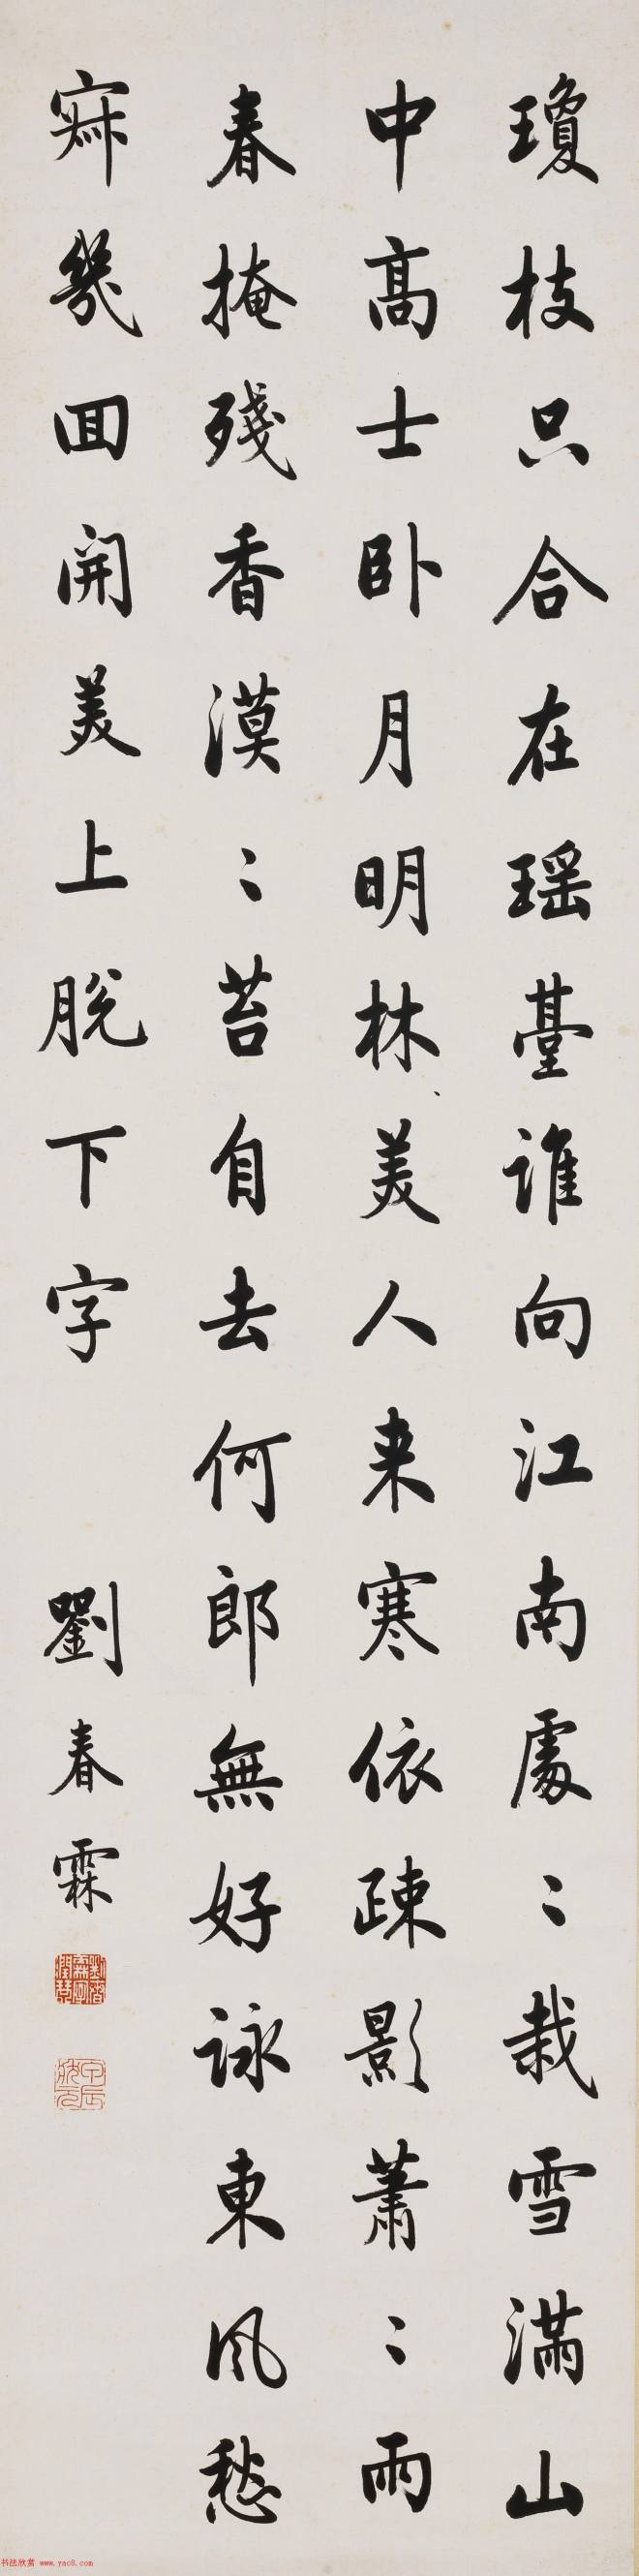 瓊枝只合在瑶臺誰向江南處〻栽雪滿山
中高士卧月明林美人来寒依疎影蕭〻雨
春掩殘香漠〻苔自去何郎無好詠東風愁
寂幾回開美上脫下字
劉春霖
甲辰狀元
书法欣赏 www.yac8.com